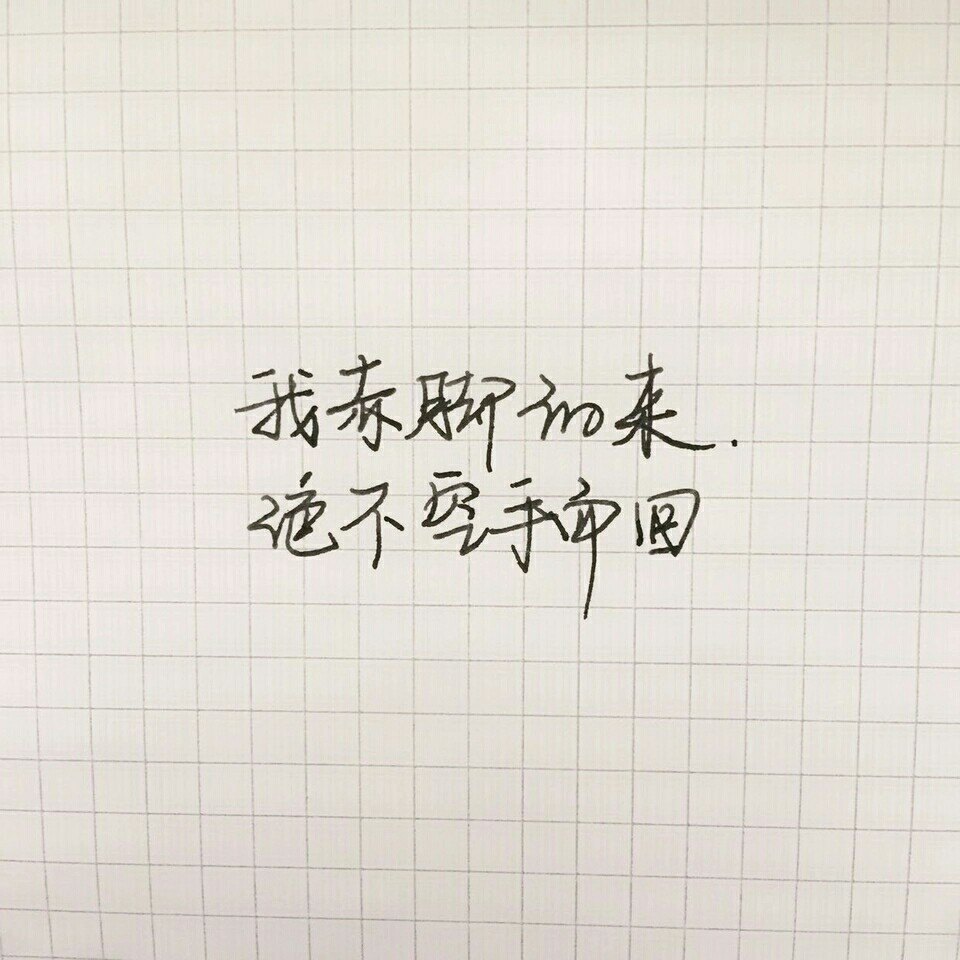 我赤脚的来.
绝不空手而回